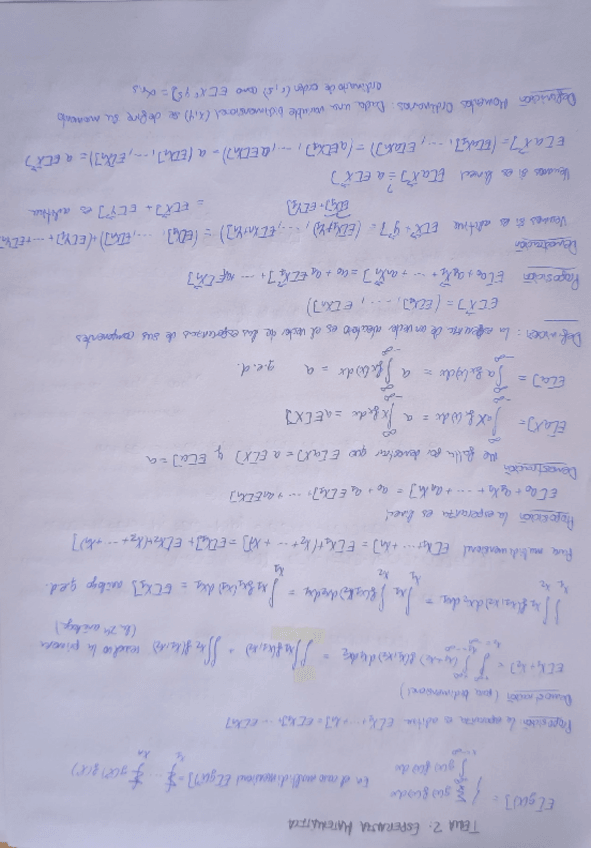 TEMA 2: ESPERANZA MATEMÁTICA
E[g(X)] = { Σ g(x) f(x) / ∫ g(x) f(x) dx En el caso multidimensional E[g(X)] = Σ ... Σ g(X) f(X)
Proposición la esperanza es aditiva E[X1 + ... + Xn] = E[X1] ... E[Xn]
Demostración (para bidimensional)
E[X1+X2] = ∫∫ (x1+x2) f(x1,x2) dx1 dx2 = ∫∫ x1 f(x1,x2) + ∫∫ x2 f(x1,x2) resuelvo la primera
(la 2ª análoga)
∫∫ x1 f(x1,x2) dx2 dx1 = ∫ x1 ∫ f(x1,x2) dx2 dx1 = ∫ x1 f(x1) dx1 = E[X1] análogo q.e.d.
Para multidimensional E[X1+...+Xn] = E[X1+(X2+...+Xn)] = E[X1] + E[X2+(X3+...+Xn)]
Proposición la esperanza es lineal
E[a0 + a1X1 + ... + anXn] = a0 + a1E[X1] + ... + anE[Xn]
Demostración
Me falta por demostrar que E[aX] = aE[X] y E[a] = a
E[aX] = ∫ a x f(x) dx = a ∫ x f(x) dx = aE[X]
E[a] = ∫ a f(x) dx = a ∫ f(x) dx = a q.e.d.
Definición: la esperanza de un vector aleatorio es el vector de las esperanzas de sus componentes
E[X] = (E[X1], ..., E[Xn])
Proposición E[a0 + a1X1 + ... + anXn] = a0 + a1E[X1] + ... anE[Xn]
Demostración
Veamos si es aditiva E[X + Y] = (E[X1+Y1], ..., E[Xn+Yn]) = (E[X1], ..., E[Xn]) + (E[Y1] + ... + E[Yn])
E[X1]+E[Y1] = E[X] + E[Y] es aditiva
Veamos si es lineal E[aX] = a E[X]
E[aX] = (E[aX1], ..., E[aXn]) = (aE[X1], ..., aE[Xn]) = a (E[X1], ..., E[Xn]) = a E[X]
Definición Momentos Ordinarios: Dada una variable bidimensional (X,Y) se define su momento
ordinario de orden (r,s) como E[X^r Y^s] = α r,s